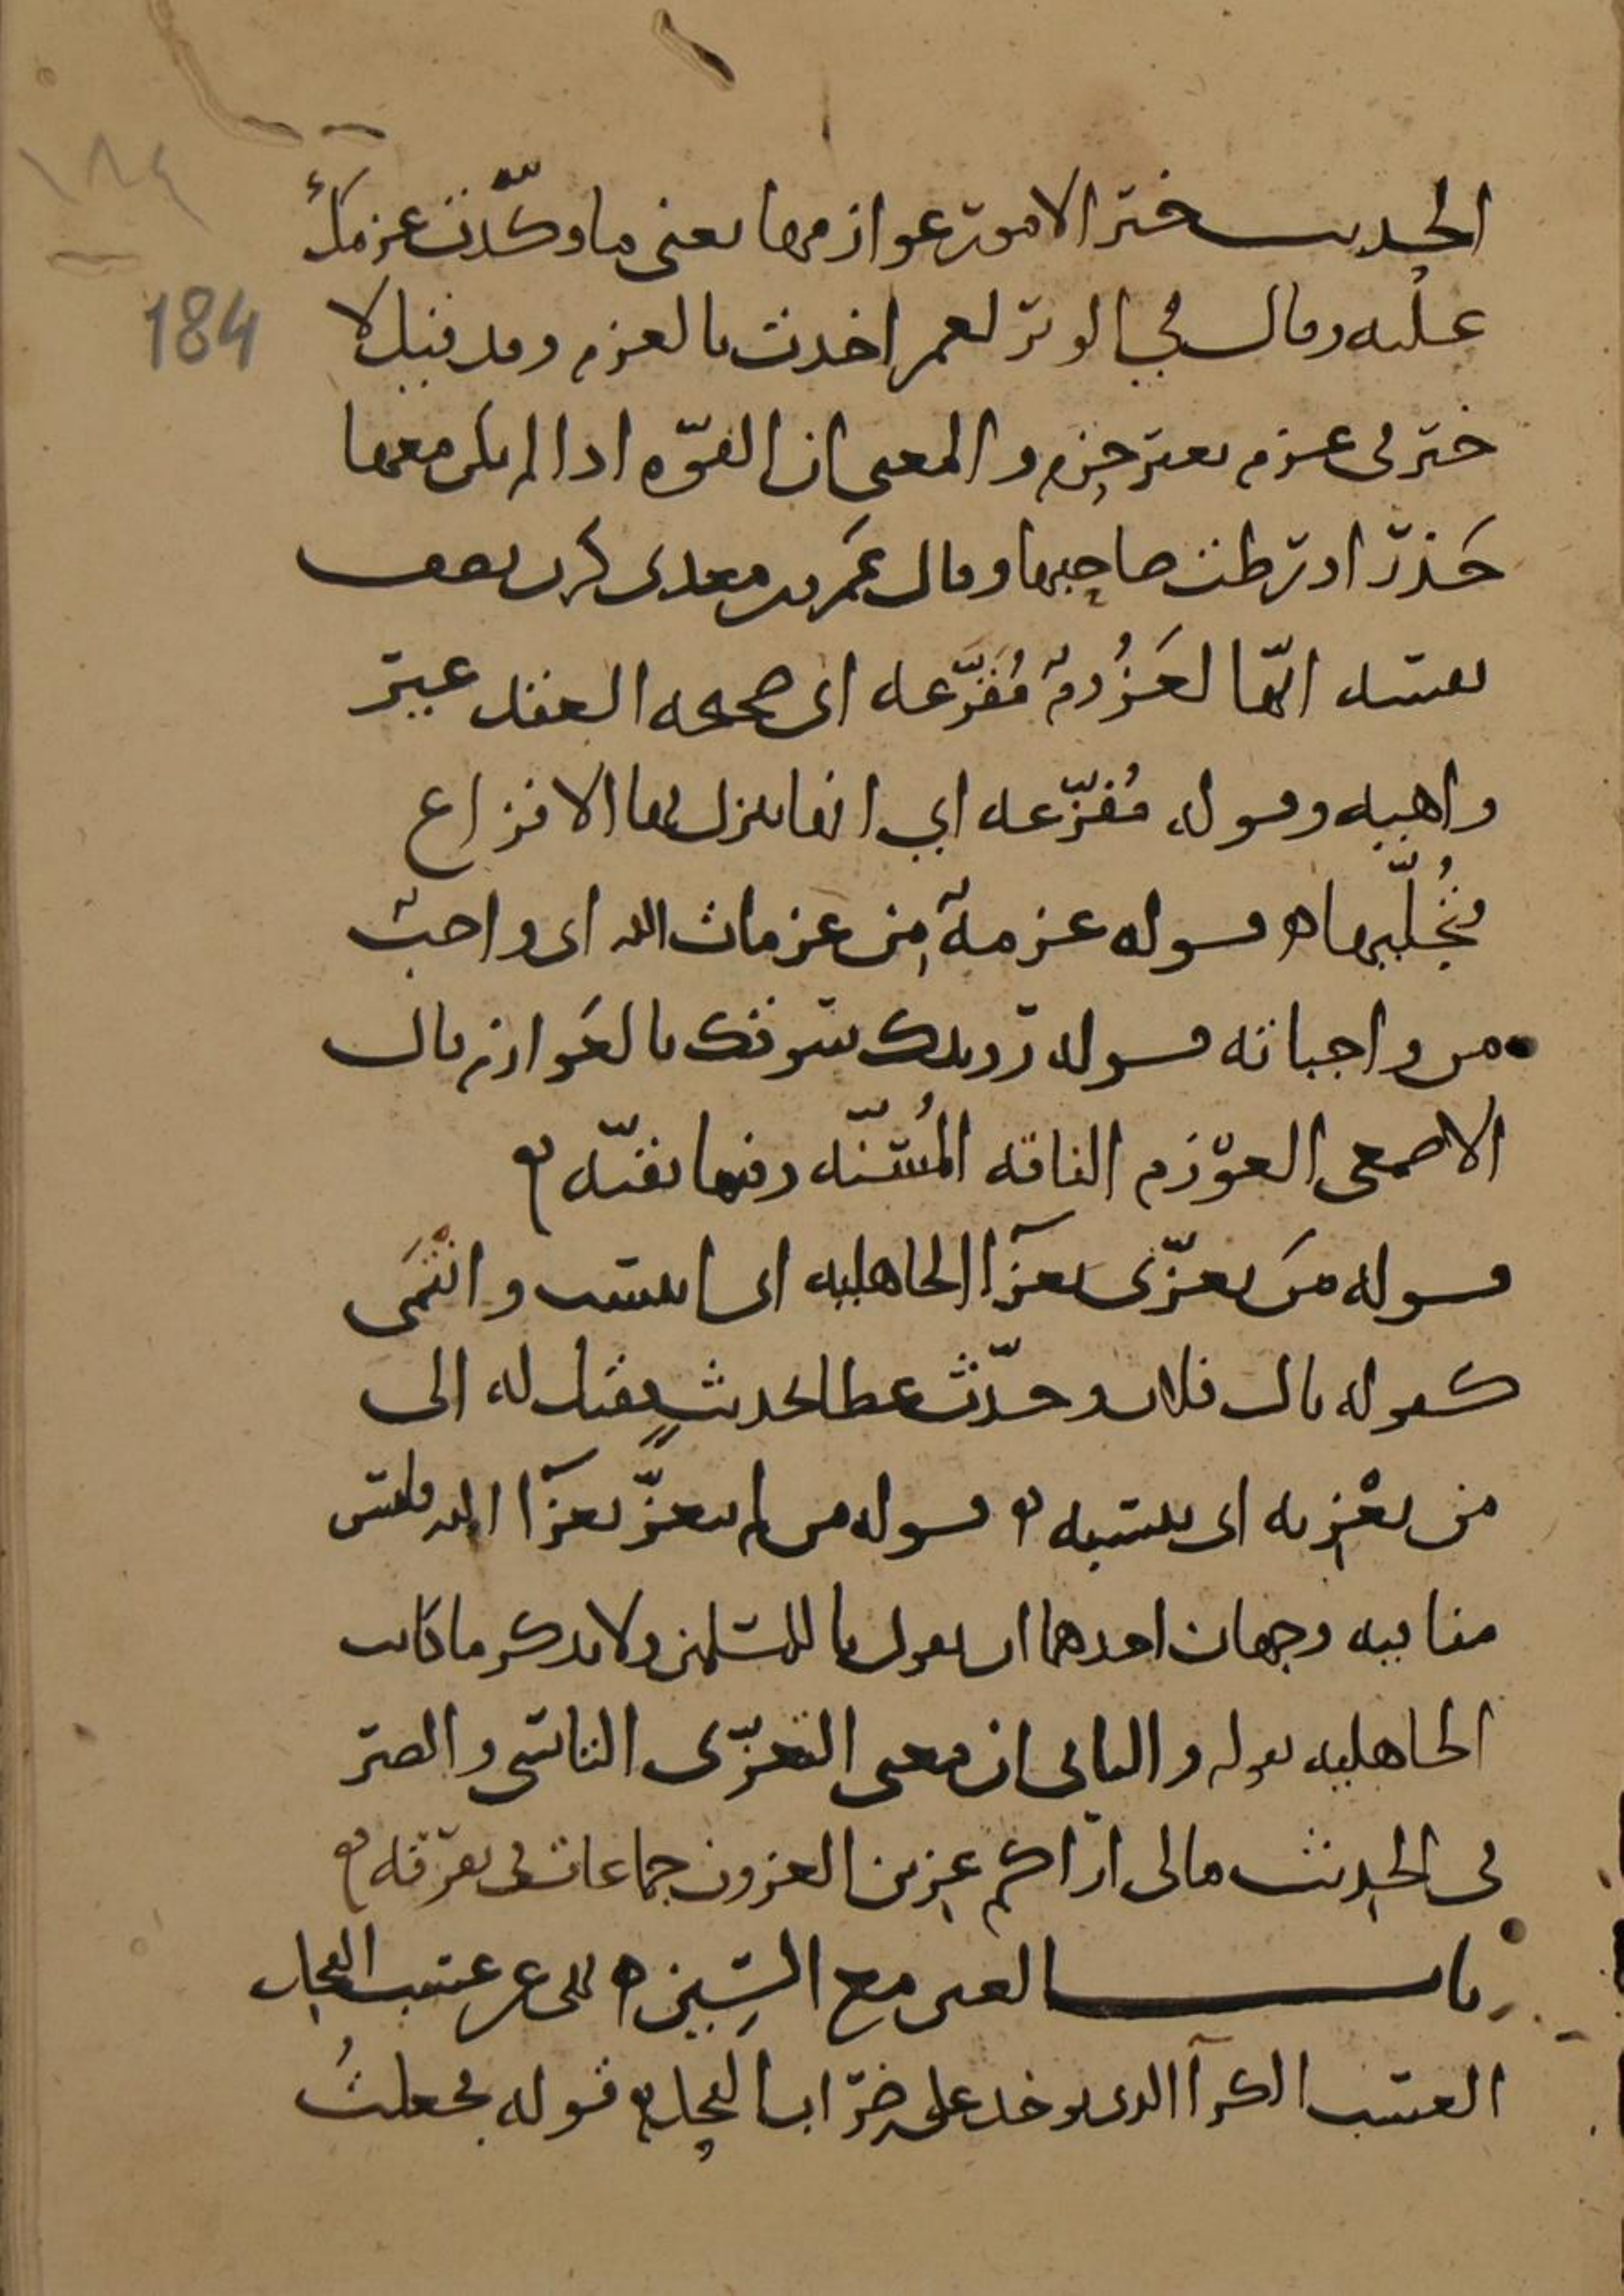 ١٨٤
184
الحديث خير الامور عوازمها يعنى ما وكّدت عزمك
عليه وقال في الوتر لعمر اخذت بالعزم وقد قيل لا
خير فى عزم بغير حزم والمعنى ان القوّه اذا لم يكن معها
حَذرٌ اورطت صاحبها وقال عَمرو بن معدى كرب يصف
لعَزُومٌ مُفَزَّعه اى صحيحه العقد غير
واهيه وقوله مُفزّعه اي انها ينزل بها الافزاع
فتُجلّيها ه قوله عزمةٌ مِن عزمات الله اى واجبٌ
من واجباته قوله رويدك سوقك بالعَوازم قال
الاصمعى العوْزم الناقه المُسنّه وفيها بقيّه ه
قوله مَن تعزّى بعزآ الجاهليه اى انتسب وانتمَى
كقوله يال فلان وحدّث عطا بحديثٍ فقيل له الى
من تعْزِيه اى تنسبه ه قوله من لم يتعزّ بعزآ الله فليس
منا فيه وجهان احدهما ان يقول يا للمسلمين ولا يذكر ما كانت
الجاهليه تقوله والثانى ان معنى التعزّى التاسّى والصبر
فى الحديث مالى اراكم عِزين العزون جماعات فى تفرّقه ه
باب العين مع السِّين ه نهى عن عسب الفحل
العسب الكرآ الذى يوخذ على ضِرَاب الفحل ه قوله فجعلتُ